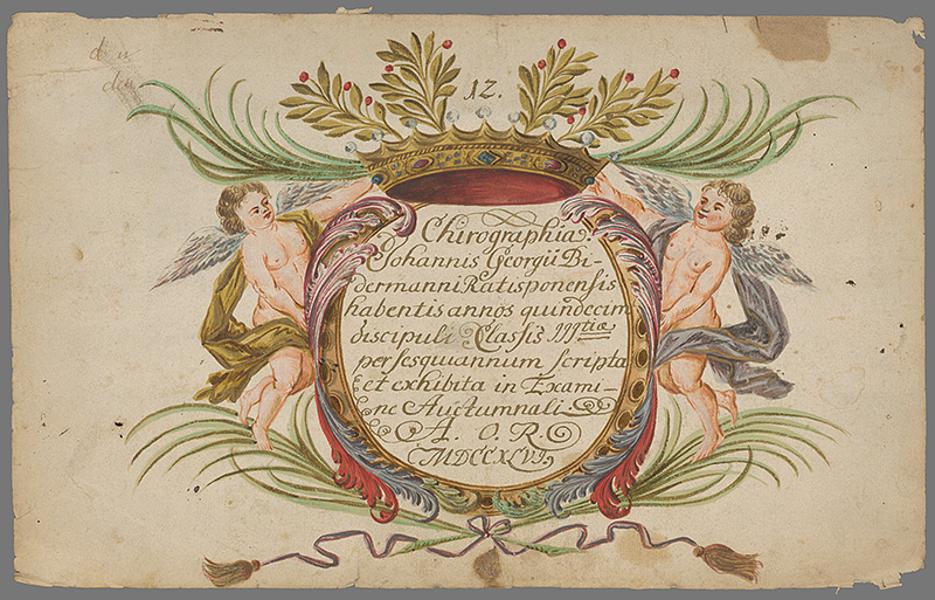 12.
Chirographia.
Johannis Georgii Bi-
dermanni Ratisponensis
habentis annos quindecim
discipuli Classis IIItiæ
per sesquiannum scripta
et exhibita in Exami-
ne Auctumnali
A. O. R.
MDCCXLVI.